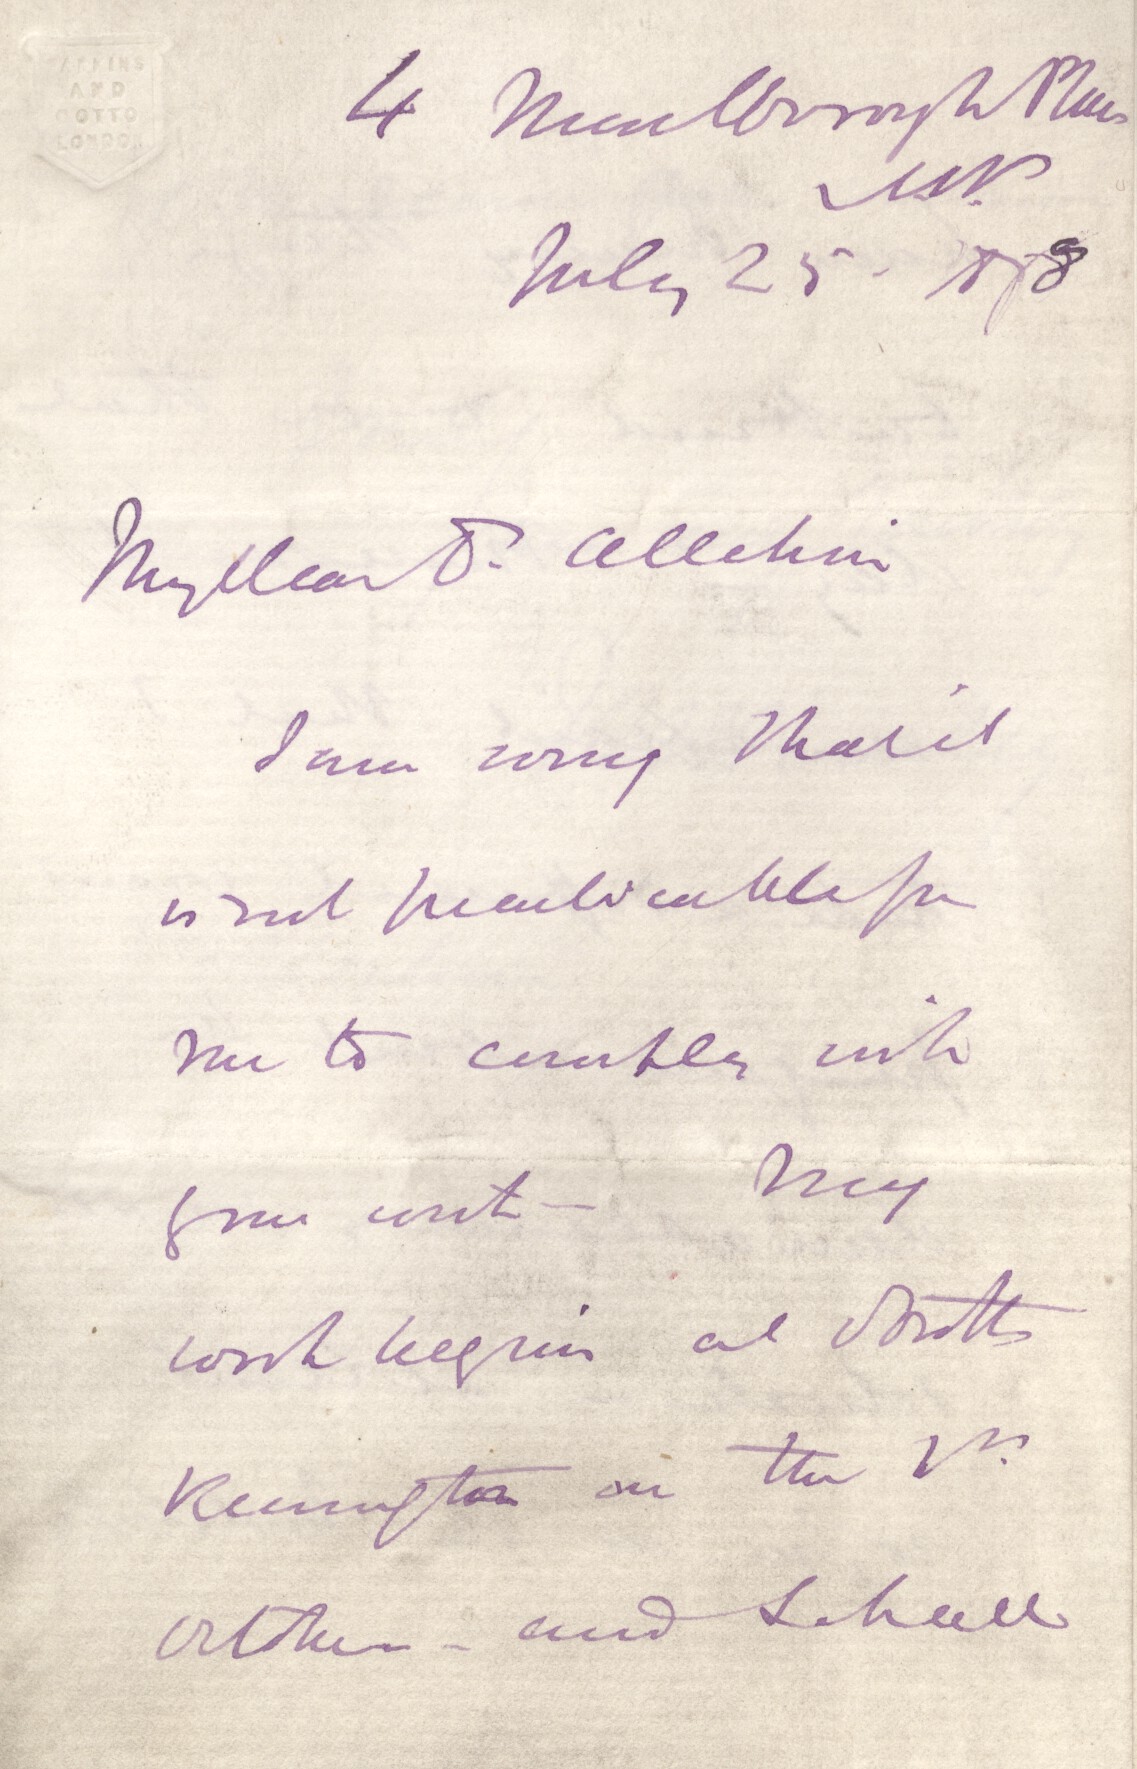 PARKINS
AND
GOTTO
LONDON
4 Marlborough Place
NW.
July 25. 1878
My dear Dr. Allchin
I am sorry that it
is not practicable for
me to comply with
your wish — My
work begins at South
Kensington on the 1st
October — and I shall